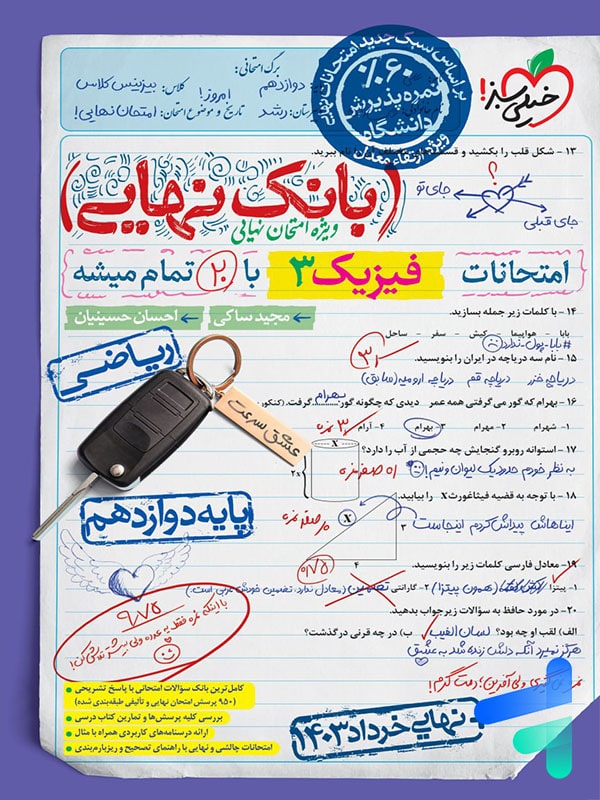 خیلی سبز!
بر اساس سبک جدید امتحانات نهایی
٪۶۰
نمره پذیرش
دانشگاه
ویژه ارتقاء معدل
برگ امتحانی:
دوازدهم
کلاس: بیزینس کلاس
امروز!
رشد
تاریخ و موضوع امتحان: امتحان نهایی!
۱۳ - شکل قلب را بکشید و
نام ببرید.
؟
جای تو
جای قبلی
(بانک نهایی)
ویژه امتحان نهایی
امتحانات فیزیک ۳ با ۲۰ تمام میشه
مجید ساکی
احسان حسینیان
ریاضی
۱۴ - با کلمات زیر جمله بسازید.
بابا - هواپیما - کیش - سفر - ساحل
#بابا_پول_ندارد
۱۵ - نام سه دریاچه در ایران را بنویسید.
دریاچه خزر دریاچه قم دریاچه ارومیه (سابق)
۱۶ - بهرام که گور می‌گرفتی همه عمر دیدی که چگونه گور بهرام گرفت. (کنکور
۱- شهرام ۲- مهرام ۳- بهرام ۴- آرام
۱۷ - استوانه روبرو گنجایش چه حجمی از آب را دارد؟
به نظر خودم حدود یک لیوان و نیم!
X
۲x
۱۸ - با توجه به قضیه فیثاغورث X را بیابید.
ایناهاش پیداش کردم اینجاست
X
۳
۴
عشق سرعت
پایه دوازدهم
۱۹ - معادل فارسی کلمات زیر را بنویسید.
۱- پیتزا (همون پیتزا) ۲- گارانتی تضمین (معادل ندارد. تضمین خودش عربی است.)
۲۰ - در مورد حافظ به سؤالات زیر جواب بدهید.
الف) لقب او چه بود؟ لسان الغیب ب) در چه قرنی درگذشت؟
هرگز نمیرد آنکه دلش زنده شد به عشق
۹/۷۵
با اینکه نمره فقط یه عدده ولی بیشتر تلاش کن!
ولی آفرین؛ دمت گرم!
کامل‌ترین بانک سؤالات امتحانی با پاسخ تشریحی
(۹۵۰ پرسش امتحان نهایی و تألیفی طبقه‌بندی شده)
بررسی کلیه پرسش‌ها و تمارین کتاب درسی
ارائه درسنامه‌های کاربردی همراه با مثال
امتحانات چالشی و نهایی با راهنمای تصحیح و ریزبارم‌بندی
نهایی خرداد ۱۴۰۳